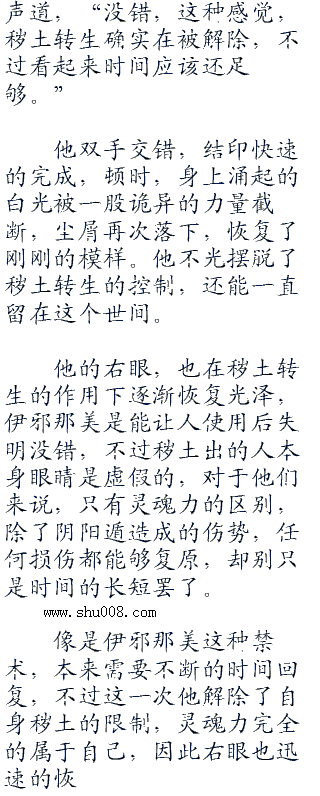 声道，“没错，这种感觉，
秽土转生确实在被解除，不
过看起来时间应该还足
够。”
他双手交错，结印快速
的完成，顿时，身上涌起的
白光被一股诡异的力量截
断，尘屑再次落下，恢复了
刚刚的模样。他不光摆脱了
秽土转生的控制，还能一直
留在这个世间。
他的右眼，也在秽土转
生的作用下逐渐恢复光泽，
伊邪那美是能让人使用后失
明没错，不过秽土出的人本
身眼睛是虚假的，对于他们
来说，只有灵魂力的区别，
除了阴阳遁造成的伤势，任
何损伤都能够复原，却别只
是时间的长短罢了。
www.shu008.com
像是伊邪那美这种禁
术，本来需要不断的时间回
复，不过这一次他解除了自
身秽土的限制，灵魂力完全
的属于自己，因此右眼也迅
速的恢